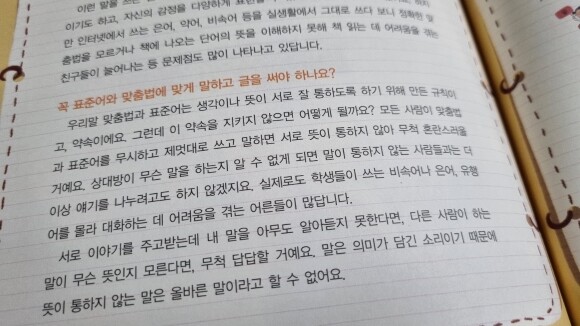 이런 말을 쓰는
이기도 하고, 자신의 감정을 다양하게
만 인터넷에서 쓰는 은어, 약어, 비속어 등을 실생활에서 그대로 쓰다 보니 정확한 맞
춤법을 모르거나 책에 나오는 단어의 뜻을 이해하지 못해 책 읽는 데 어려움을 겪는
친구들이 늘어나는 등 문제점도 많이 나타나고 있답니다.
꼭 표준어와 맞춤법에 맞게 말하고 글을 써야 하나요?
우리말 맞춤법과 표준어는 생각이나 뜻이 서로 잘 통하도록 하기 위해 만든 규칙이
고, 약속이에요. 그런데 이 약속을 지키지 않으면 어떻게 될까요? 모든 사람이 맞춤법
과 표준어를 무시하고 제멋대로 쓰고 말하면 서로 뜻이 통하지 않아 무척 혼란스러울
거예요. 상대방이 무슨 말을 하는지 알 수 없게 되면 말이 통하지 않는 사람들과는 더
이상 얘기를 나누려고도 하지 않겠지요. 실제로도 학생들이 쓰는 비속어나 은어, 유행
어를 몰라 대화하는 데 어려움을 겪는 어른들이 많답니다.
서로 이야기를 주고받는데 내 말을 아무도 알아듣지 못한다면, 다른 사람이 하는
말이 무슨 뜻인지 모른다면, 무척 답답할 거예요. 말은 의미가 담긴 소리이기 때문에
뜻이 통하지 않는 말은 올바른 말이라고 할 수 없어요.